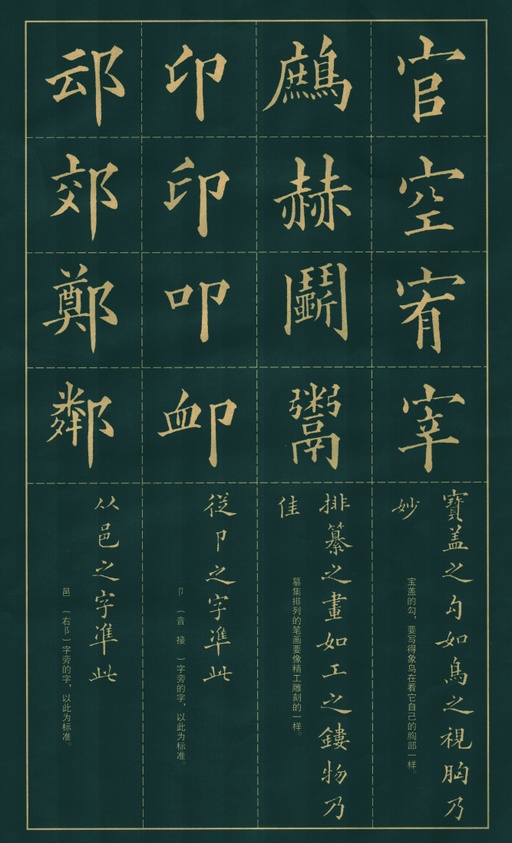 官
空
宥
宰
寳盖之勾如鳥之視胸乃
妙
宝盖的勾，要写得象鸟在看它自己的胸部一样。
鷓
赫
鬭
鬻
排纂之畫如工之鏤物乃
佳
集排列的笔画要像精工雕刻的一样。
印
印
叩
卹
從卩之字準此
卩 （音 接 ）字旁的字，以此为标准。
䢵
郊
鄭
鄰
从邑之字準此
邑 （右阝）字旁的字，以此为标准